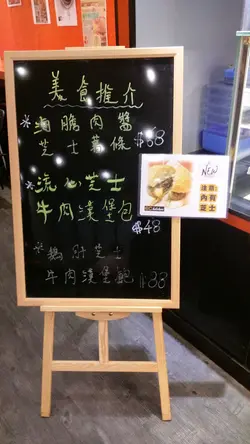 美食推介
*湘腸肉醬
芝士薯條 $68
*流心芝士
牛肉漢堡包
$48
*鵝肝芝士
牛肉漢堡飽 $88
NEW
內有
芝士